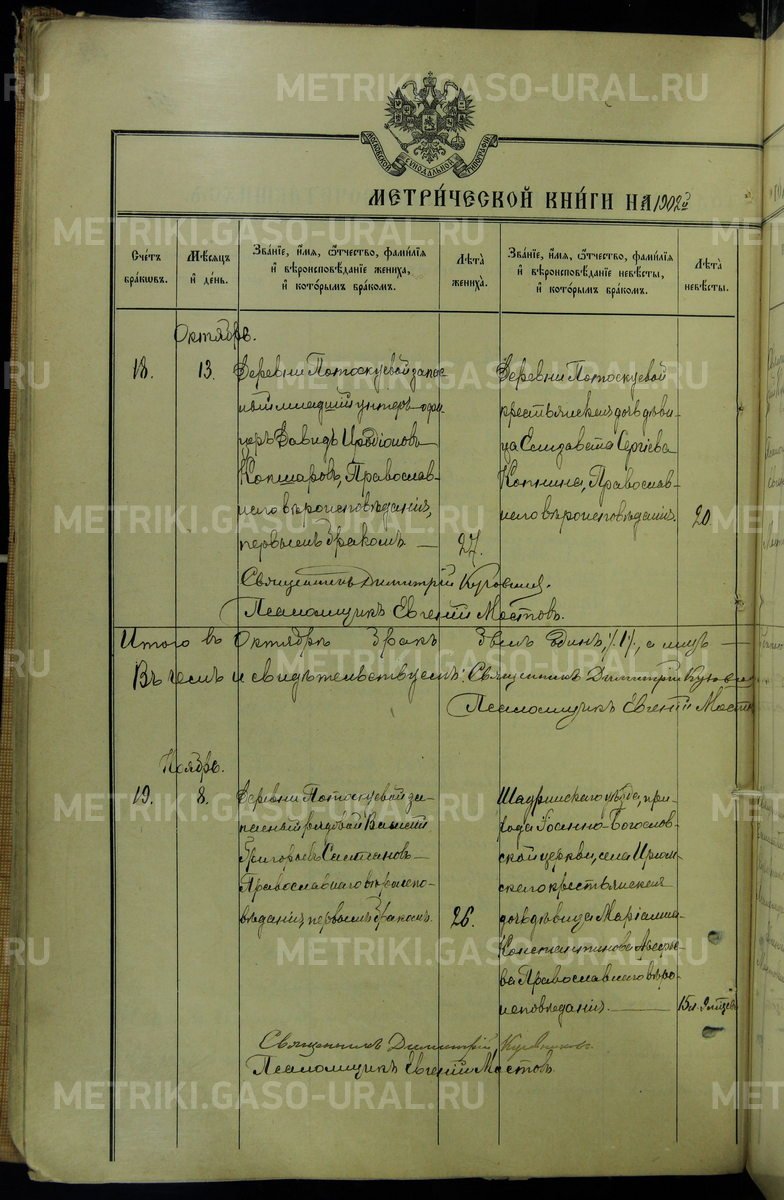 METRIKI.GASO-URAL.RU
МОСКОВСКОЙ СѴНОДАЛЬНОЙ ТИПОГРАФІИ
МЕТРИ́ЧЕСКОЙ КНИ́ГИ НА 1902й
Сче́тъ бра́кѡвъ.
Мѣ́сѧцъ и҆ де́нь.
Зва́нїе, и҆́мѧ, ѻ҆́тчество, фами́лїѧ и҆ вѣроисповѣ́данїе жениха̀, и҆ кото́рымъ бра́комъ.
Лѣ́та жениха̀.
Зва́нїе, и҆́мѧ, ѻ҆́тчество, фами́лїѧ и҆ вѣроисповѣ́данїе невѣ́сты, и҆ кото́рымъ бра́комъ.
Лѣ́та невѣ́сты.
Октябрь.
18.
13.
Деревни Потоскуевой запас
ный младший унтеръ-офи
церъ Давидъ Иродіоновъ
Копшаровъ, Православ-
наго вѣроисповѣданія,
первымъ бракомъ —
27.
Деревни Потоскуевой
крестьянская дочь дѣви
ца Елизавета Сергіева
Копнина, Православ-
наго вѣроисповѣданія.
20.
Священникъ Димитрій
Псаломщикъ Евгеній Мостовъ.
Итого въ Октябрѣ бракъ одинъ, /1/, а лицъ —
Въ чемъ и свидѣтельствуемъ: Священникъ Димитрій
Псаломщикъ Евгеній Мостовъ
Ноябрь.
19.
8.
Деревни Потоскуевой за-
пасный рядовой
Григорьевъ
Православнаго вѣроиспо-
вѣданія, первымъ бракомъ.
26.
Шадринскаго уѣзда, при-
хода Іоанно-Богослов-
ской церкви, села
скаго крестьянская
дочь дѣвица Маріамна
Константинова
ва Православнаго вѣро-
исповѣданія.
15 л.
Священникъ Димитрій
Псаломщикъ Евгеній Мостовъ